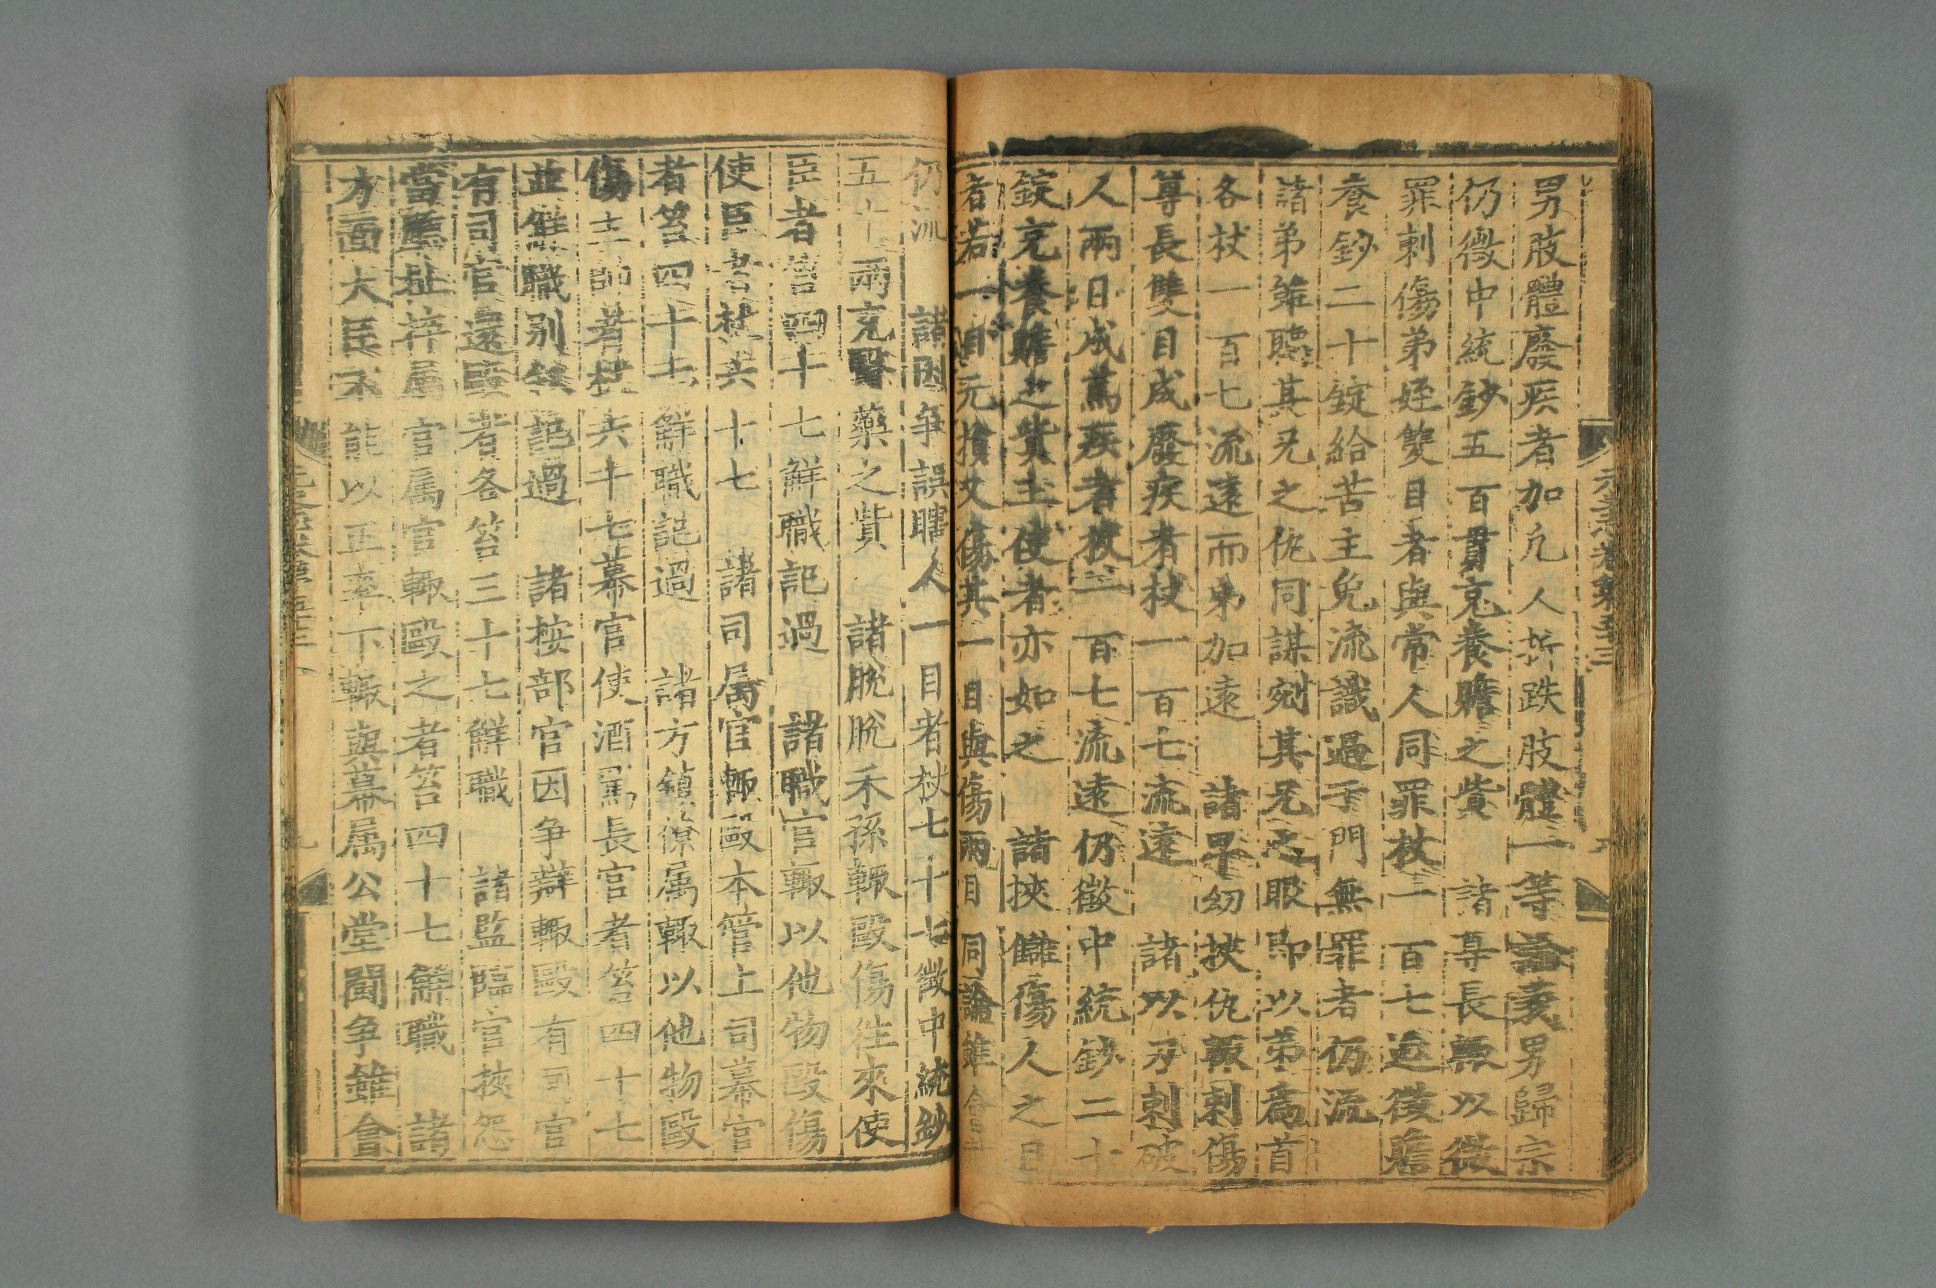 男肢體廢疾者加凡人折跌肢體一等論妻男歸宗
仍徵中統鈔五百貫充養贍之貲 諸尊長輒以微
罪刺傷弟姪雙目者與常人同罪杖一百七追徵贍
養鈔二十錠給苦主免流識過于門無罪者仍流
諸弟雖聽其兄之仇同謀剜其兄之眼即以弟為首
各杖一百七流遠而弟加遠 諸卑幼挾仇輒刺傷
尊長雙目成廢疾者杖一百七流遠 諸以刃刺破
人兩目成篤疾者杖一百七流遠仍徵中統鈔二十
錠充養贍之貲主使者亦如之 諸挾讎傷人之目
者若一目元損又傷其一目與傷兩目同論雖會赦
仍流 諸因爭誤瞎人一目者杖七十七徵中統鈔
五十兩充醫藥之貲 諸脫脫禾孫輒毆傷往來使
臣者笞四十七解職記過 諸職官輒以他物毆傷
使臣者杖六十七 諸司属官輒毆本管上司幕官
者笞四十七解職記過 諸方鎮僚属輒以他物毆
傷主帥者杖六十七幕官使酒罵長官者笞四十七
並解職別叙記過 諸按部官因爭辯輒毆有司官
有司官還毆者各笞三十七解職 諸監臨官挾怨
當廳扯捽属官属官輒毆之者笞四十七解職 諸
方面大臣不能以正率下輒與幕属公堂鬭爭雖會